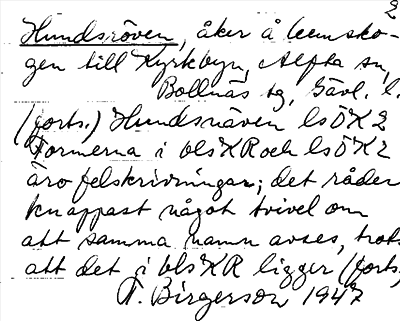 2
Hundsröven, åker å hemsko-
gen till Kyrkbyn, Alfta sn,
Bollnäs tg, Gävl. l.
(forts.) Hundsnäven ls Ö K 2
Formerna i bls KR och ls Ö K 2
äro felskrivningar; det råder
knappast något tvivel om
att samma namn avses, trots
att det i bls KR ligger (forts.)
T. Birgerson 1947